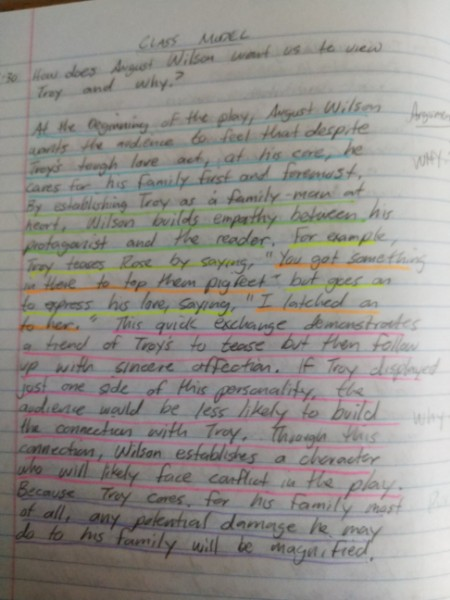 CLASS MODEL
:30 How does August Wilson want us to view
Troy and why?
At the beginning of the play, August Wilson
wants the audience to feel that despite
Troy's tough love act, at his core, he
cares for his family first and foremost.
By establishing Troy as a family-man at
heart, Wilson builds empathy between his
protagonist and the reader. For example,
Troy teases Rose by saying, "You got something
in there to top them pigfeet" but goes on
to express his love, saying, "I latched on
to her." This quick exchange demonstrates
a trend of Troy's to tease but then follow
up with sincere affection. If Troy displayed
just one side of this personality, the
audience would be less likely to build
the connection with Troy. Through this
connection, Wilson establishes a character
who will likely face conflict in the play.
Because Troy cares for his family most
of all, any potential damage he may
do to his family will be magnified.
WHY
Why